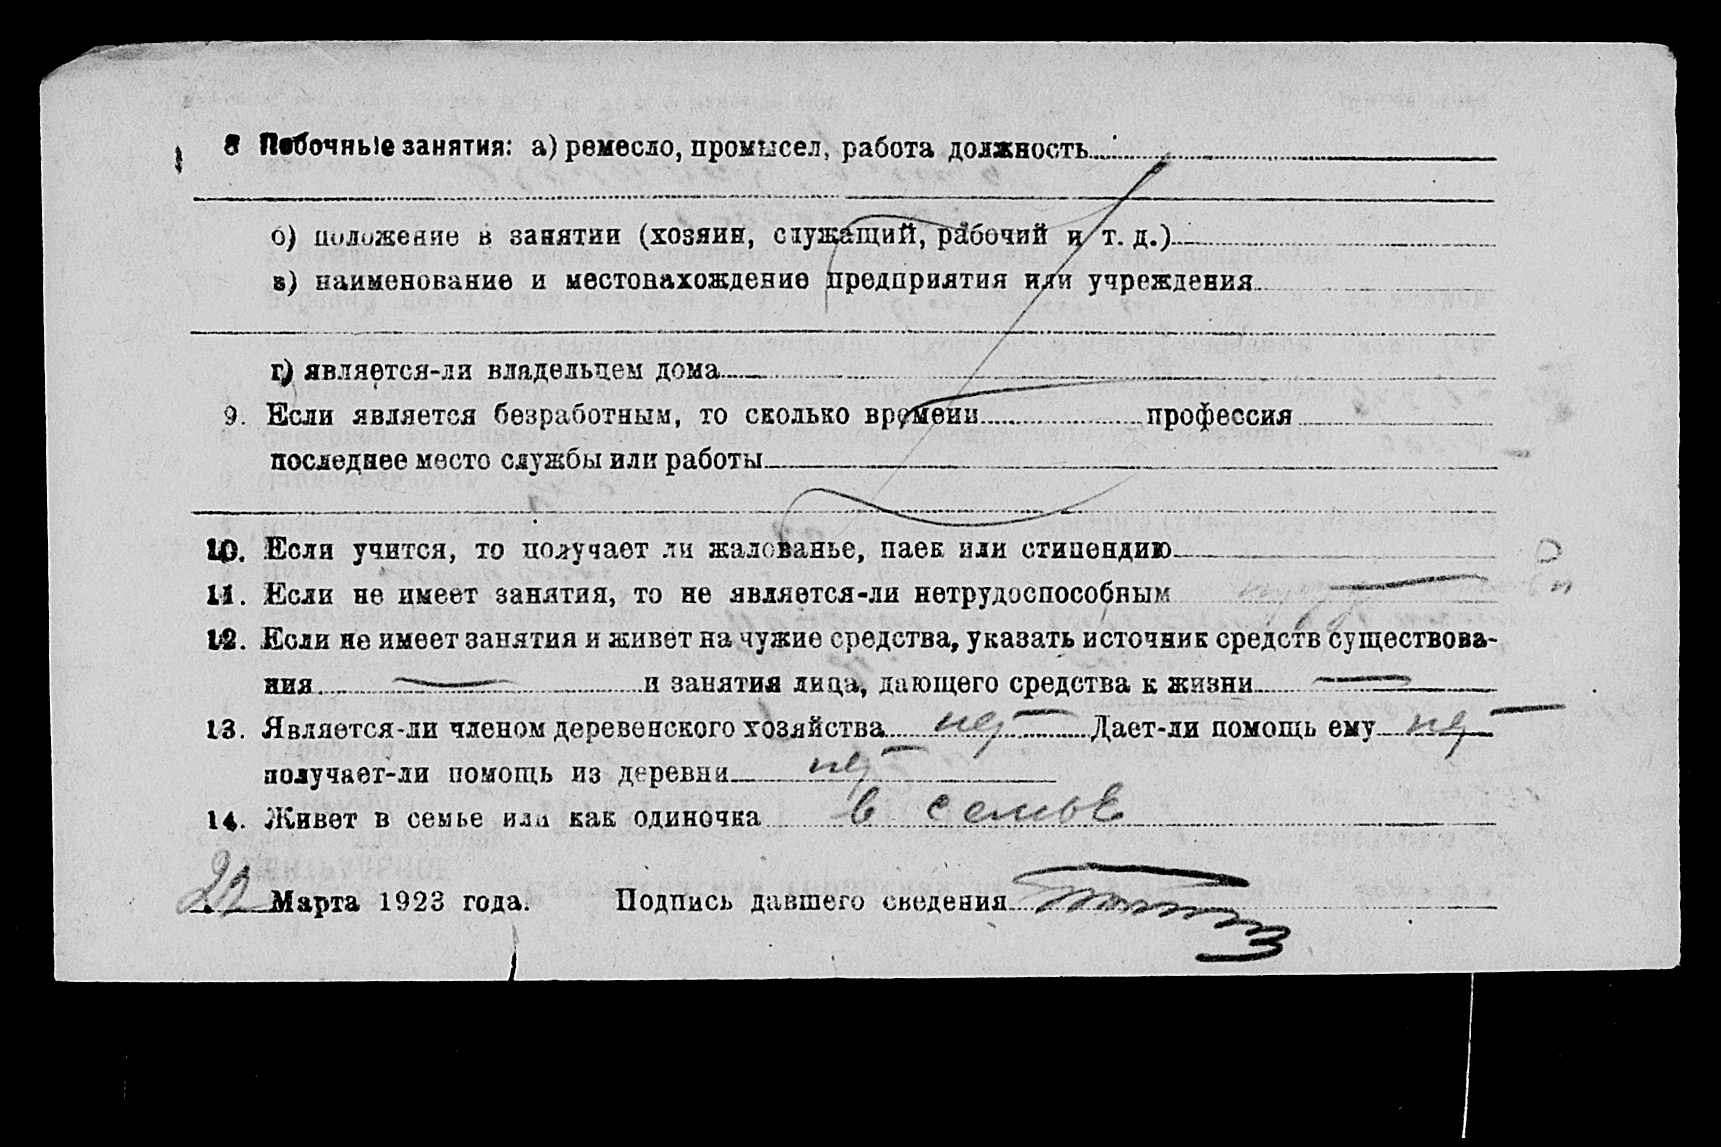 8 Побочные занятия: а) ремесло, промысел, работа должность
б) положение в занятии (хозяин, служащий, рабочий и т. д.)
в) наименование и местонахождение предприятия или учреждения
г) является-ли владельцем дома
9. Если является безработным, то сколько времени профессия
последнее место службы или работы
10. Если учится, то получает ли жалованье, паек или стипендию
11. Если не имеет занятия, то не является-ли нетрудоспособным —
12. Если не имеет занятия и живет на чужие средства, указать источник средств существова-
ния — и занятия лица, дающего средства к жизни —
13. Является-ли членом деревенского хозяйства нет Дает-ли помощь ему нет
получает-ли помощь из деревни нет
14. Живет в семье или как одиночка в семье
22 Марта 1923 года. Подпись давшего сведения